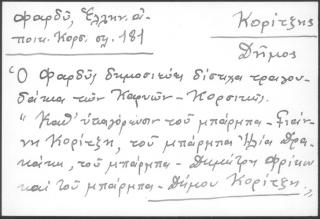 Φαρδύ, Ἑλλην. ἀ-
ποικ. Κορσ. σελ. 181
Κορίτζης
Δῆμος
Ὁ Φαρδῦς δημοσιεύει δίστιχα τραγου-
δάκια τῶν Καρυῶν - Κορσικῆς.
"Καθ' ὑπαγόρευσιν τοῦ μπάρμπα - Γιάν-
νη Κορίτζη, τοῦ μπάρμπα Ἠλία Δρα-
κάκη, τοῦ μπάρμπα - Δημήτρη Φρίκου
καὶ τοῦ μπάρμπα - Δήμου Κορίτζη"